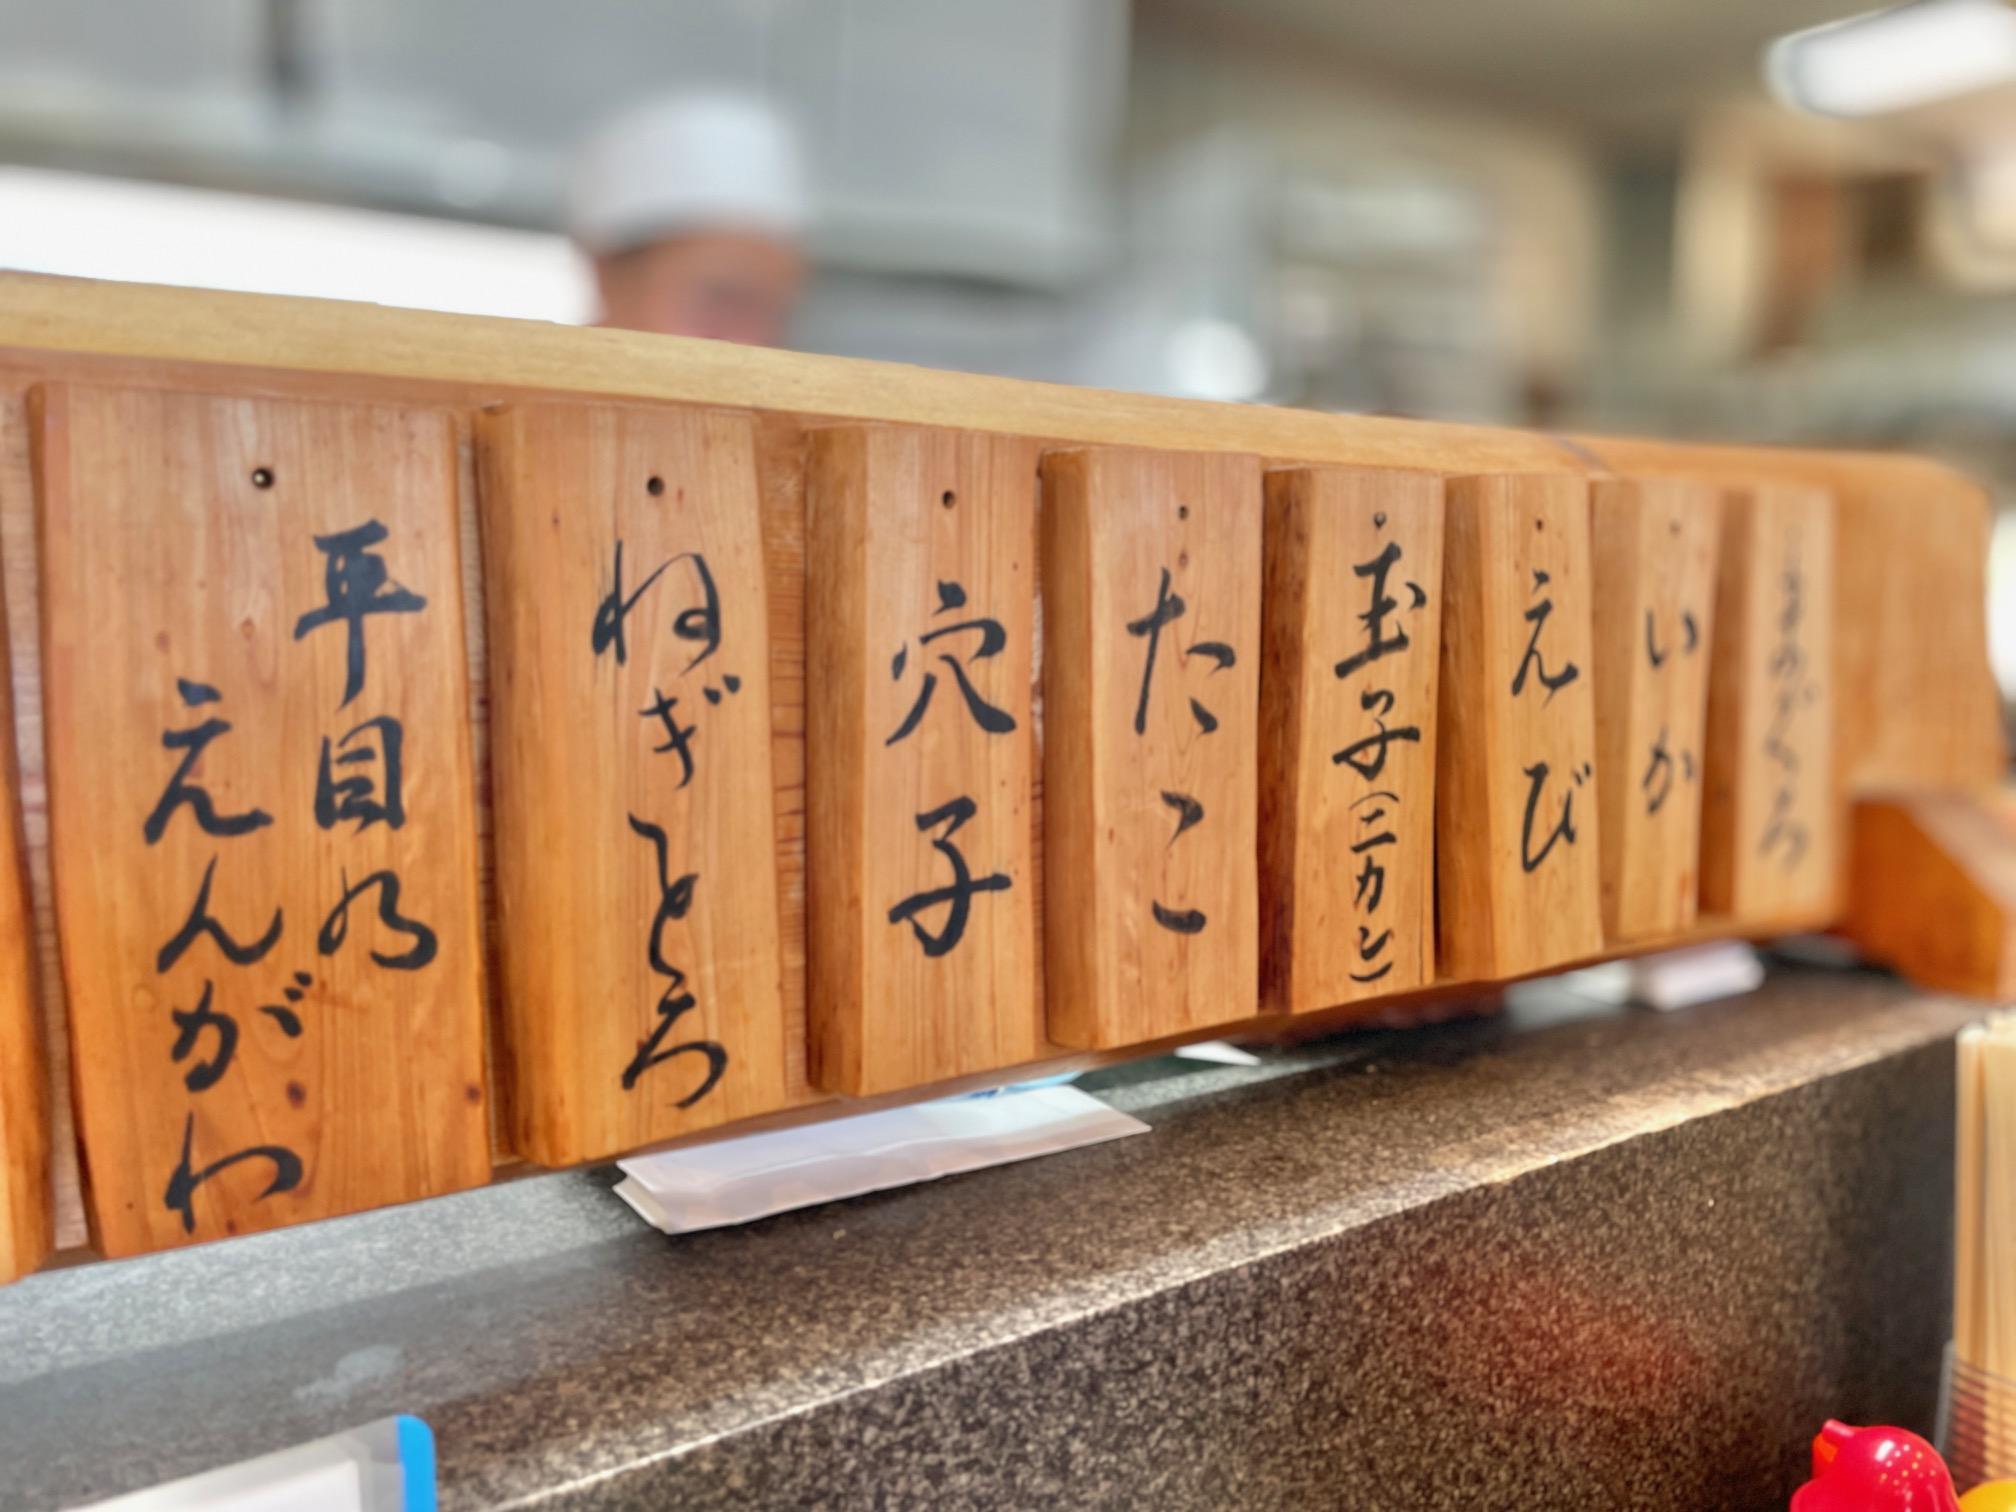 いか
えび
玉子(二カン)
たこ
穴子
ねぎとろ
平目の
えんがわ